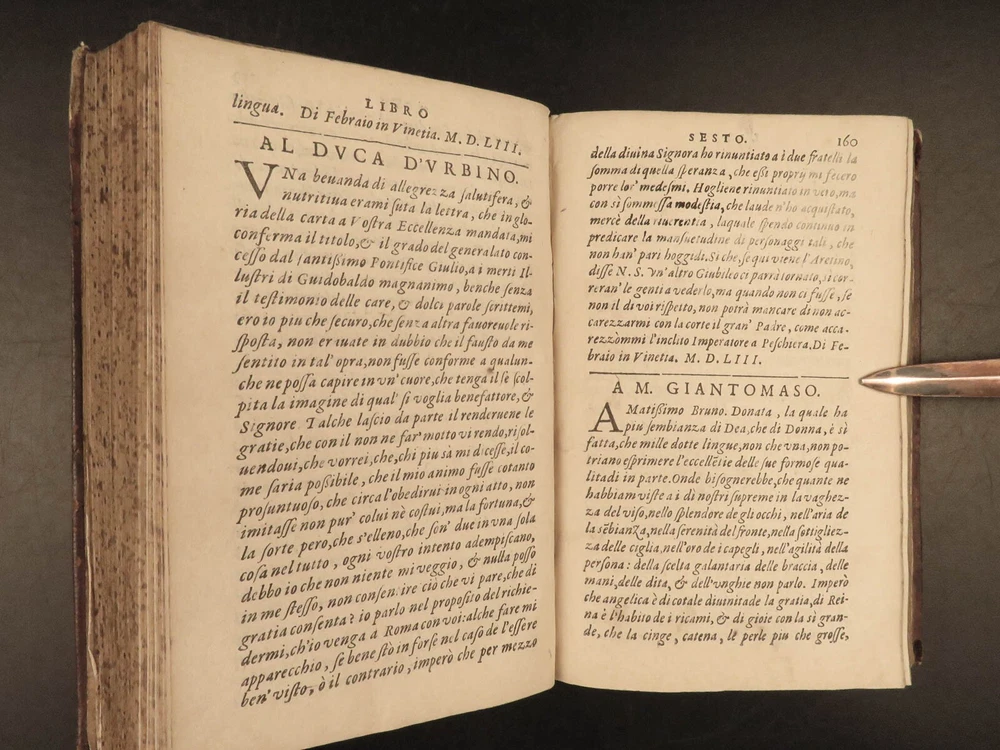 LIBRO
lingua. Di Febraio in Vinetia. M. D. LIII.
AL DVCA D'VRBINO.
VNa beuanda di allegrezza salutifera, &
nutritiua erami suta la lettra, che in glo-
ria della carta a Vostra Eccellenza mandata, mi
conferma il titolo, & il grado del generalato con-
cesso dal santißimo Pontifice Giulio, a i merti Il-
lustri di Guidobaldo magnanimo, benche senza
il testimonio delle care, & dolci parole scrittemi,
ero io piu che securo, che senza altra fauoreuole ri-
sposta, non eruate in dubbio che il fausto da me
sentito in tal' opra, non fusse conforme a qualun-
che ne possa capire in vn' cuore, che tenga il se scol-
pita la imagine di qual' si voglia benefattore, &
Signore Talche lascio da parte il renderuene le
gratie, che con il non ne far' motto vi rendo, risol-
uendoui, che vorrei, che, chi piu sà mi dicesse, il co-
me saria poßibile, che il mio animo fusse cotanto
prosuntuoso, che circa l'obedirui in ogni atto, non
imitasse non pur' colui nè costui, ma la fortuna, &
la sorte pero, che s'elleno, che son' due in vna sola
cosa nel tutto, ogni vostro intento adempiscano,
debbo io che non niente mi veggio, & nulla posso
in me stesso, non consentire ciò che vi pare, che di
gratia consenta è io parlo nel proposito del richie-
dermi, ch'io venga a Roma con voi: alche fare mi
apparecchio, se bene sto in forse nel caso de l'essere
ben' visto, ò il contrario, imperò che per mezzo
SESTO. 160
della diuina Signora ho rinuntiato a i due fratelli la
somma di quella speranza, che eßi proprij mi fecero
porre lor' medesmi. Hogliene rinuntiato in vero, ma
con sì sommessa modestia, che laude n'ho acquistato,
mercè della riuerentia, laquale spendo continuo in
predicare la mansuetudine di personaggi tali, che
non han' pari hoggidì. Si che, se qui viene l'Aretino,
disse N. S. vn' altro Giubileo ci parrà tornato, sì cor-
reran' le genti a vederlo, ma quando non ci fusse, se
non il di voi rispetto, non potrà mancare di non ac-
carezzarmi con la corte il gran' Padre, come acca-
rezzòmmi l'inclito Imperatore a Peschiera. Di Fe-
braio in Vinetia. M. D. LIII.
A M. GIANTOMASO.
AMatißimo Bruno. Donata, la quale ha
piu sembianza di Dea, che di Donna, è sì
fatta, che mille dotte lingue, non che vna, non po-
triano esprimere l'eccellẽtie delle sue formose qua-
litadi in parte. Onde bisognerebbe, che quante ne
habbiam viste a i dì nostri supreme in la vaghez-
za del viso, nello splendore de gli occhi, nell'aria de
la sẽbianza, nella serenità del fronte, nella sottigliez-
za delle ciglia, nell'oro de i capegli, nell'agilità della
persona: della scelta galantaria delle braccia, delle
mani, delle dita, & dell'vnghie non parlo. Imperò
che angelica è di cotale diuinitade la gratia, di Rei-
na è l'habito de i ricami, & di gioie con la sì gran-
de, che la cinge, catena, le perle piu che grosse,